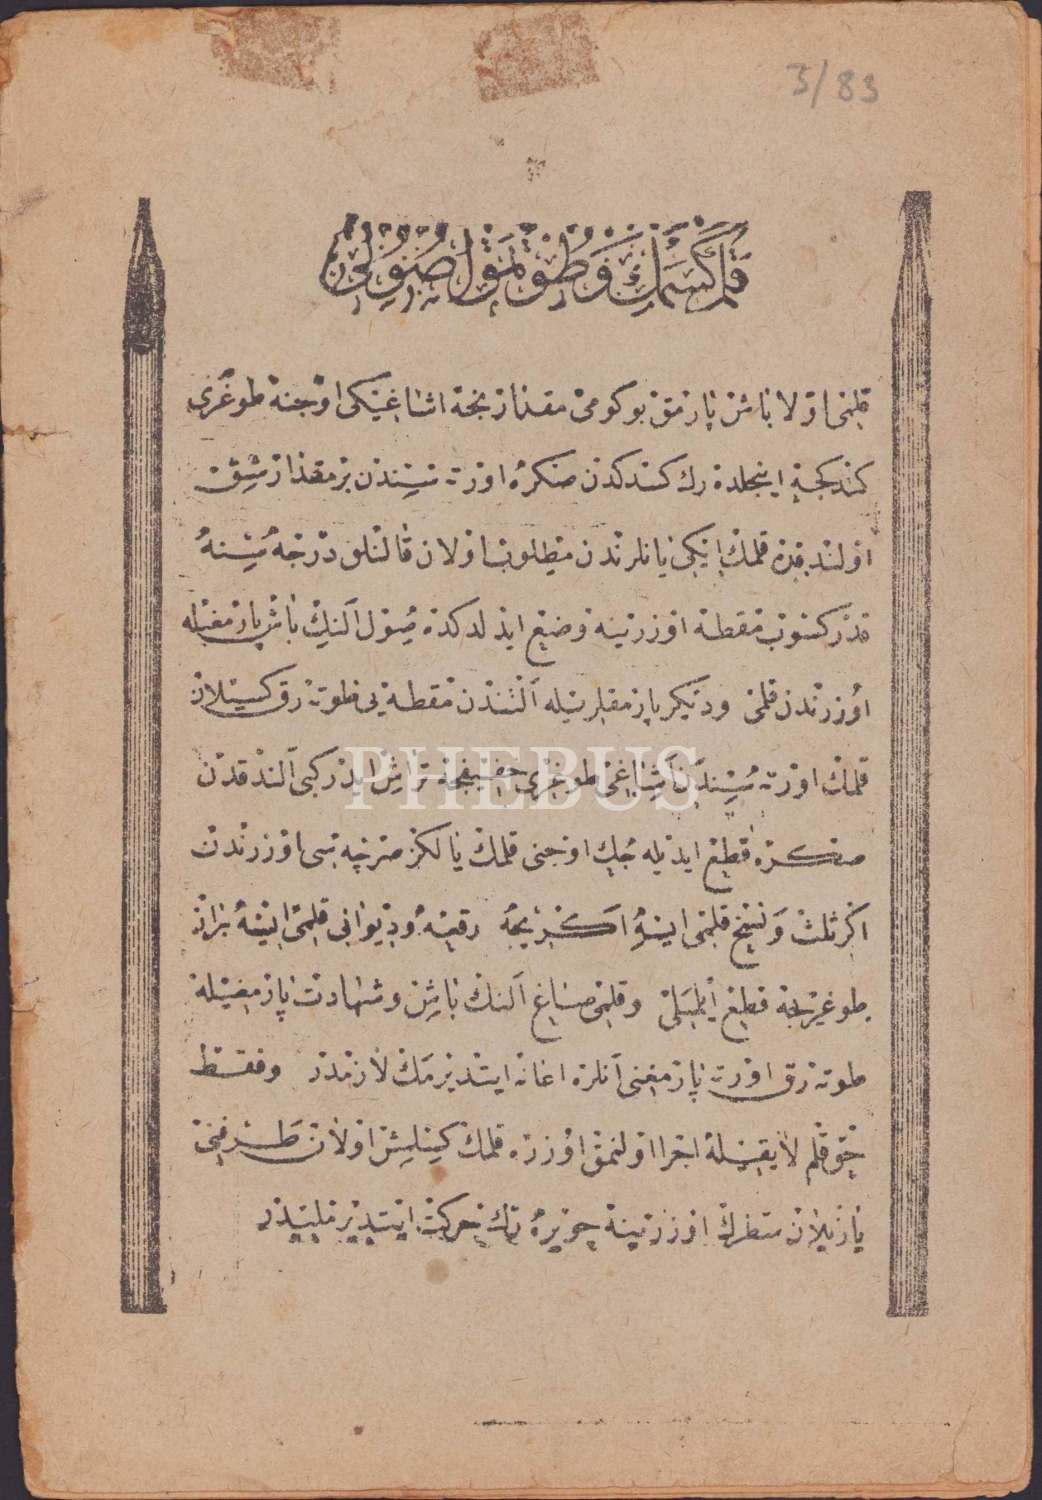 3/83
قلم كسمك و طوتمق اصولى
قلمى اولا باش پارمق بوكومى مقدار نجه اشاغيكى اوجنه طوغرى
كندكجه اينجلده رك كسدكدن صكره اورته سندن بر مقدار شق
اولندقده قلمك ايكى يانلرندن مطلوب اولان قالنلق درجه سنه
قدر كسوب مقطه اوزرينه وضع ايدلدكده صول الك باش پارمغيله
اوزرندن قلمى وديكر پارمقلريله آلتندن مقطه يى طوته رق كسيلان
قلمك اورته سندن اشاغى طوغرى خفيفجه تراش ايدر كبى آلندقدن
صكره قطع ايديله جك اوجنى قلمك يالكز صرچه سى اوزرندن
اكر ثلث و نسخ قلمى ايسه اكريجه رقعه وديوانى قلمى ايسه براز
طوغريجه قطع ايلملى وقلمى صاغ الك باش وشهادت پارمغيله
طوته رق اورته پارمغنى آنلره اعانه ايتديرمك لازمدر وفقط
حق قلم لايقيله اجرا اولنمق اوزره قلمك كسلمش اولان طرفنى
يازيلان سطرك اوزرينه چويره رك حركت ايتديرملیدر
PHEBUS